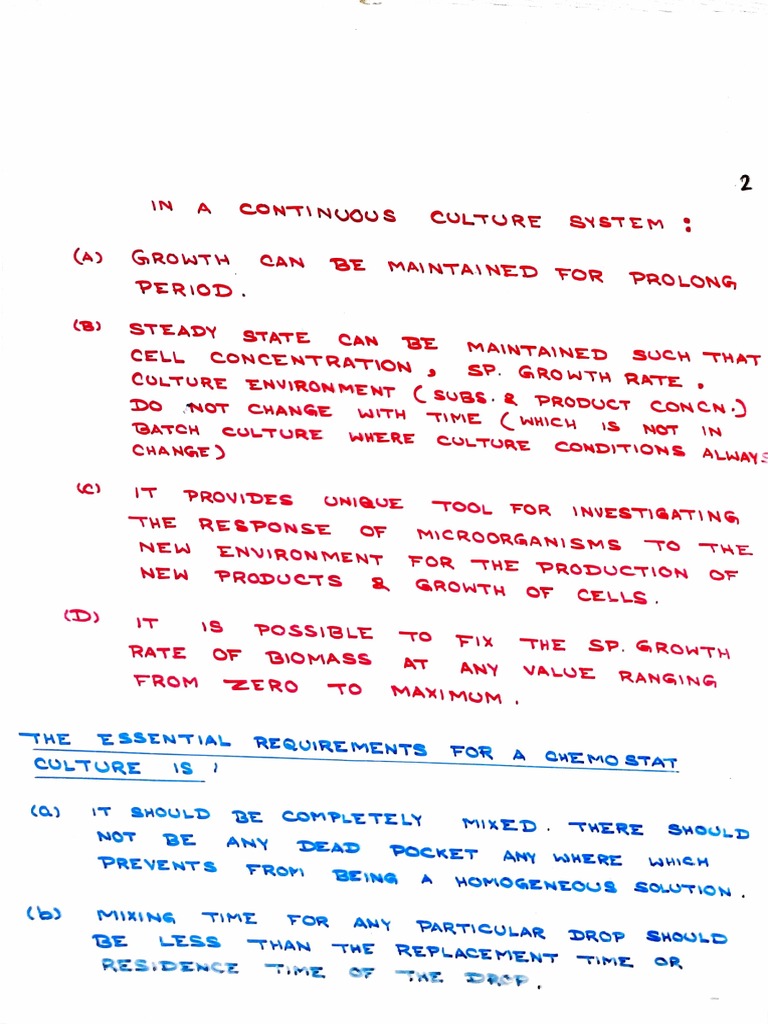 2
IN A CONTINUOUS CULTURE SYSTEM :
(A) GROWTH CAN BE MAINTAINED FOR PROLONG
PERIOD.
(B) STEADY STATE CAN BE MAINTAINED SUCH THAT
CELL CONCENTRATION, SP. GROWTH RATE,
CULTURE ENVIRONMENT (SUBS. & PRODUCT CONCN.)
DO NOT CHANGE WITH TIME (WHICH IS NOT IN
BATCH CULTURE WHERE CULTURE CONDITIONS ALWAYS
CHANGE)
(C) IT PROVIDES UNIQUE TOOL FOR INVESTIGATING
THE RESPONSE OF MICROORGANISMS TO THE
NEW ENVIRONMENT FOR THE PRODUCTION OF
NEW PRODUCTS & GROWTH OF CELLS.
(D) IT IS POSSIBLE TO FIX THE SP. GROWTH
RATE OF BIOMASS AT ANY VALUE RANGING
FROM ZERO TO MAXIMUM.
THE ESSENTIAL REQUIREMENTS FOR A CHEMOSTAT
CULTURE IS :
(a) IT SHOULD BE COMPLETELY MIXED. THERE SHOULD
NOT BE ANY DEAD POCKET ANY WHERE WHICH
PREVENTS FROM BEING A HOMOGENEOUS SOLUTION.
(b) MIXING TIME FOR ANY PARTICULAR DROP SHOULD
BE LESS THAN THE REPLACEMENT TIME OR
RESIDENCE TIME OF THE DROP.